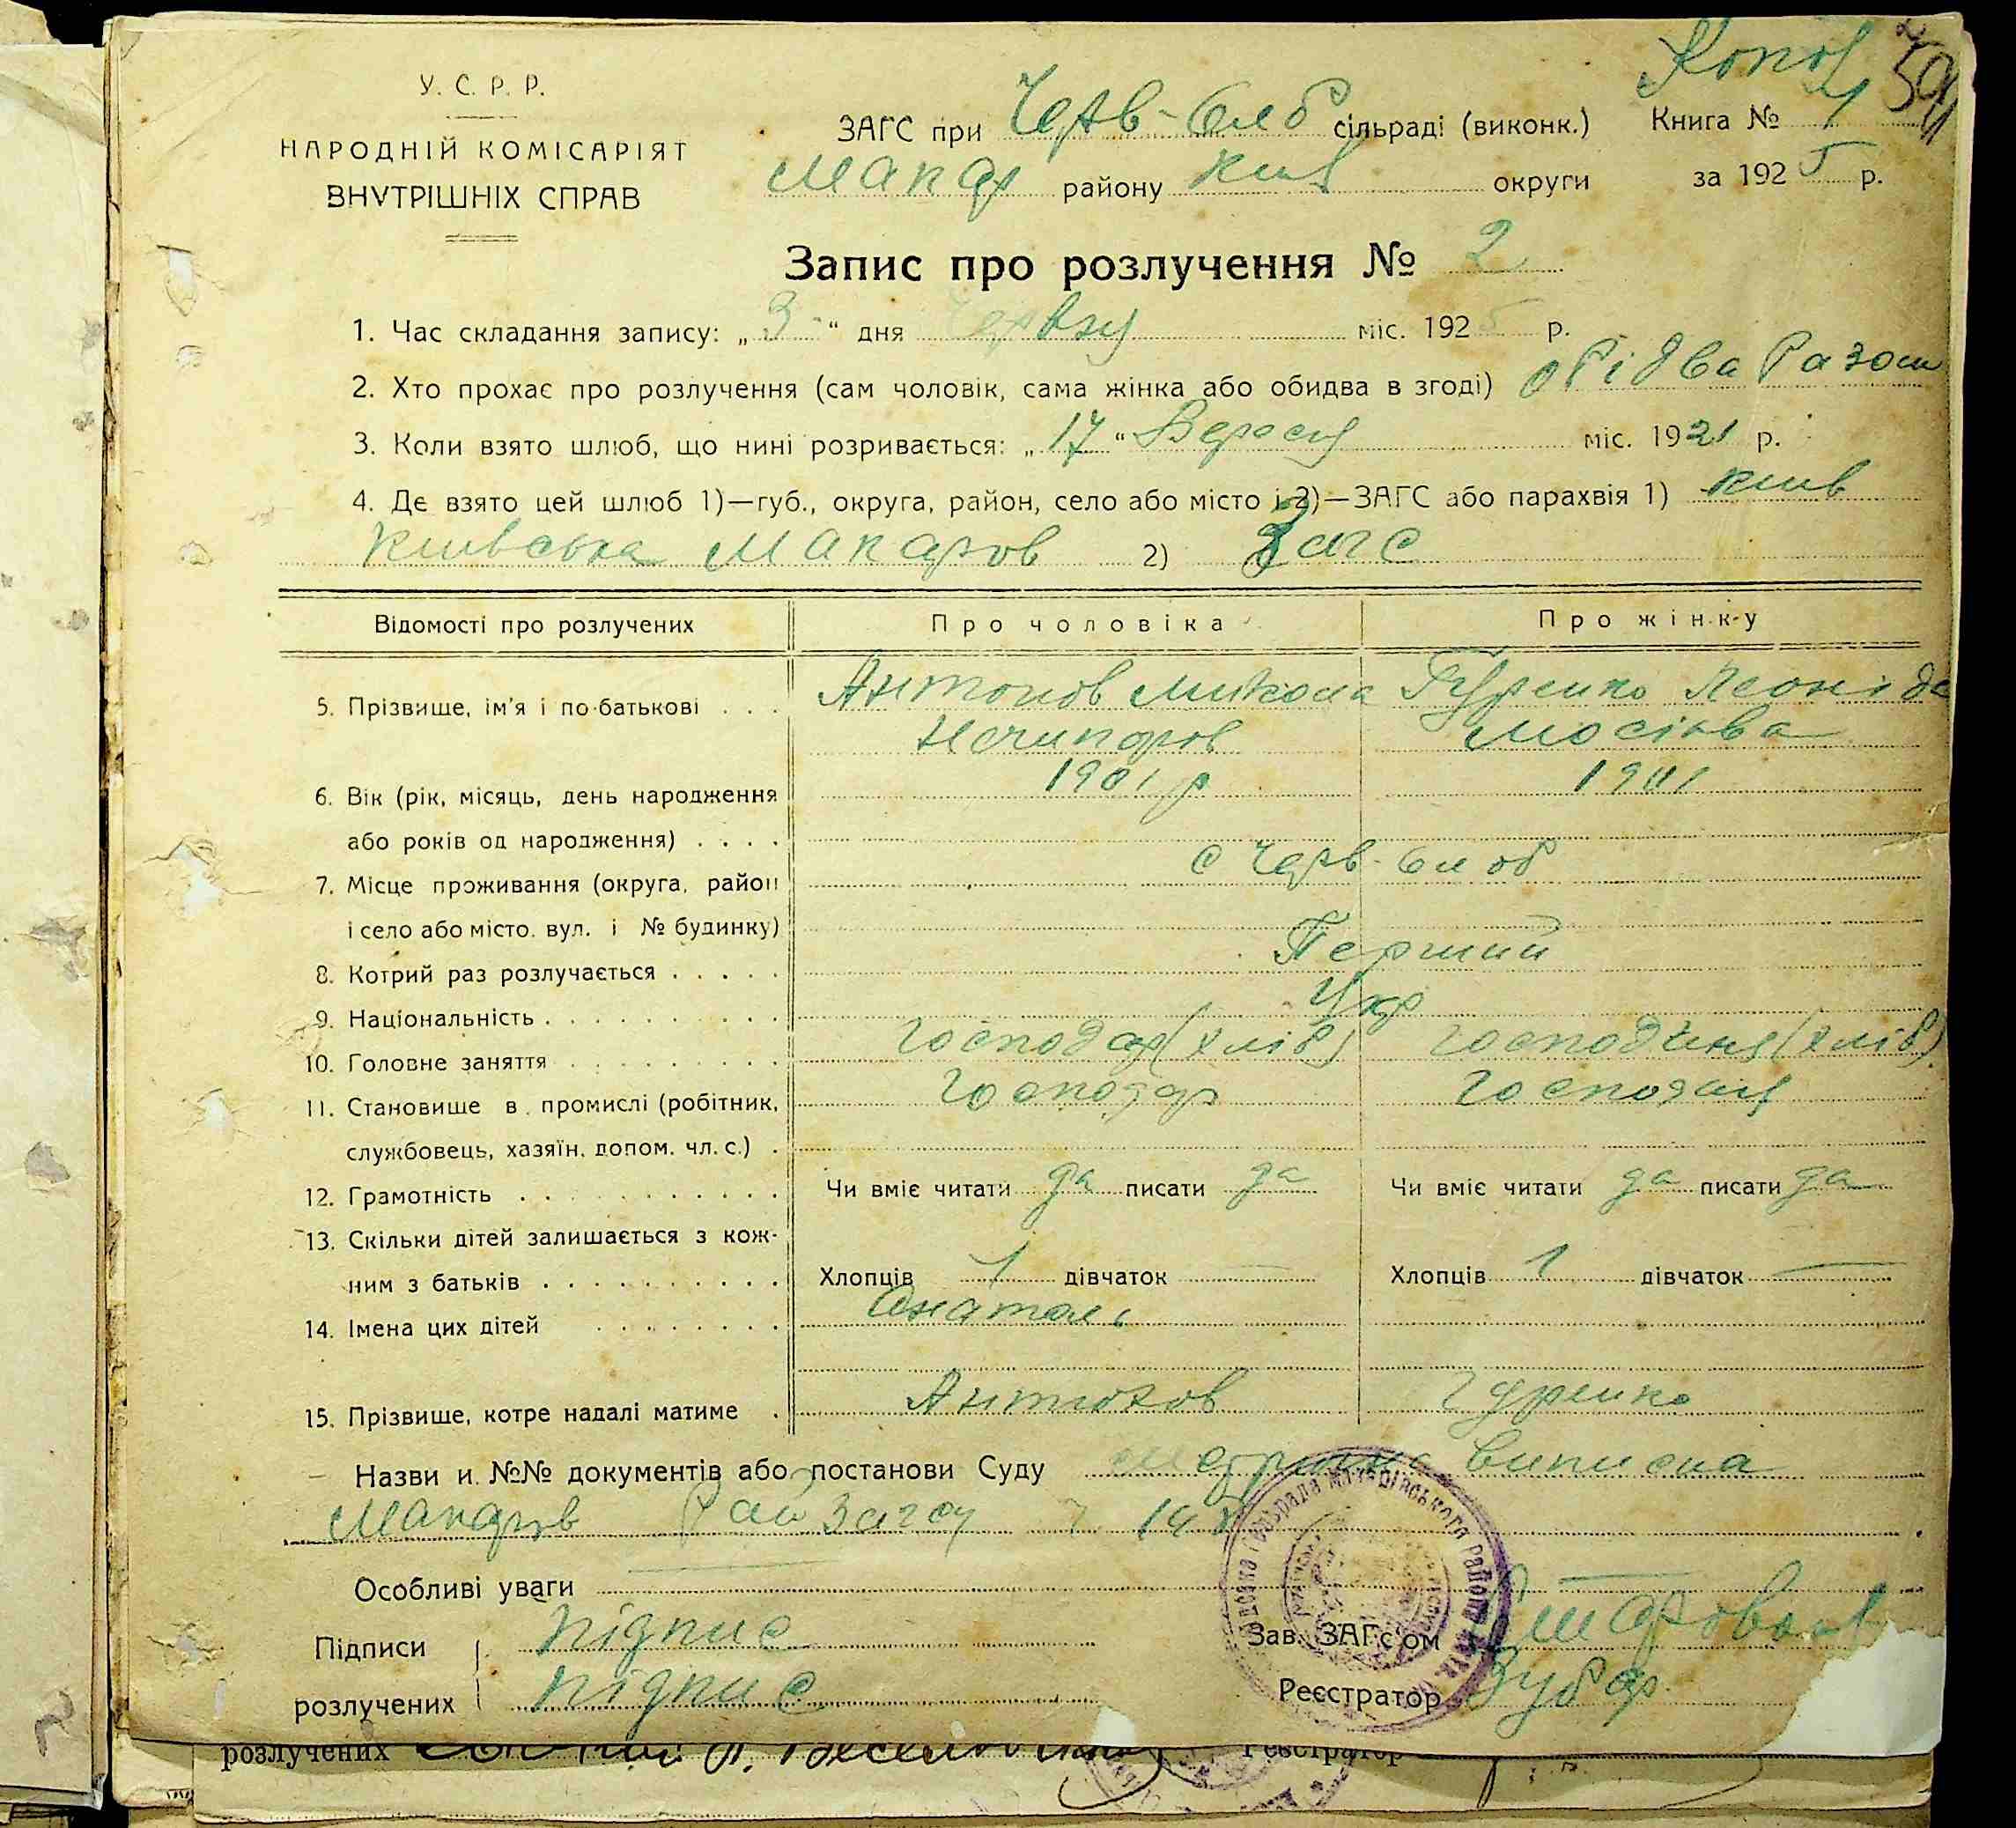 Копія
59
У. С. Р. Р.
НАРОДНІЙ КОМІСАРІЯТ
ВНУТРІШНІХ СПРАВ
ЗАГС при Черв-Слоб сільраді (виконк.) Книга № 1
Макар району Київ округи за 1925 р.
Запис про розлучення № 2
1. Час складання запису: „3“ дня Червня міс. 1925 р.
2. Хто прохає про розлучення (сам чоловік, сама жінка або обидва в згоді) обідва разом
3. Коли взято шлюб, що нині розривається: „17“ Вересня міс. 1921 р.
4. Де взято цей шлюб 1)—губ., округа, район, село або місто і 2)—ЗАГС або парахвія 1) Київ
Київська Макаров 2) Загс
Відомості про розлучених Про чоловіка Про жінку
5. Прізвище, ім'я і по-батькові . . . Антонов Микола Гуренко Леоніда
Нечипоров Мосієва
6. Вік (рік, місяць, день народження 1901 р 1901
або років од народження) . . . .
7. Місце проживання (округа, район с Черв-Слоб
і село або місто, вул. і № будинку)
8. Котрий раз розлучається . . . . . Перший
9. Національність . . . . . . . . . . Укр
10. Головне заняття . . . . . . . . . Господар (хліб) Господиня (хліб)
11. Становище в промислі (робітник, Господар Господиня
службовець, хазяїн, допом. чл. с.) .
12. Грамотність . . . . . . . . . . . Чи вміє читати да писати да Чи вміє читати да писати да
13. Скільки дітей залишається з кож-
ним з батьків . . . . . . . . . . Хлопців 1 дівчаток — Хлопців 1 дівчаток —
14. Імена цих дітей . . . . . . . . Анатоль
15. Прізвище, котре надалі матиме . Антонов Гуренко
Назви и №№ документів або постанови Суду метрична виписка
Макарів Рай Загсу
Особливі уваги
Підписи підпис Зав. ЗАГС'ом
розлучених підпис Реєстратор Зубар
розлучених Реєстратор